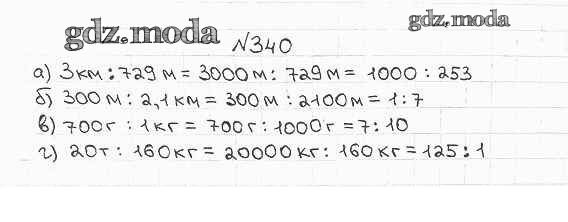 gdz.moda
gdz.moda
№340
а) 3км : 729 м = 3000 м : 729 м = 1000 : 253
б) 300 м : 2,1 км = 300 м : 2100 м = 1 : 7
в) 700г : 1 кг = 700г : 1000 г = 7 : 10
г) 20т : 160 кг = 20000 кг : 160 кг = 125 : 1